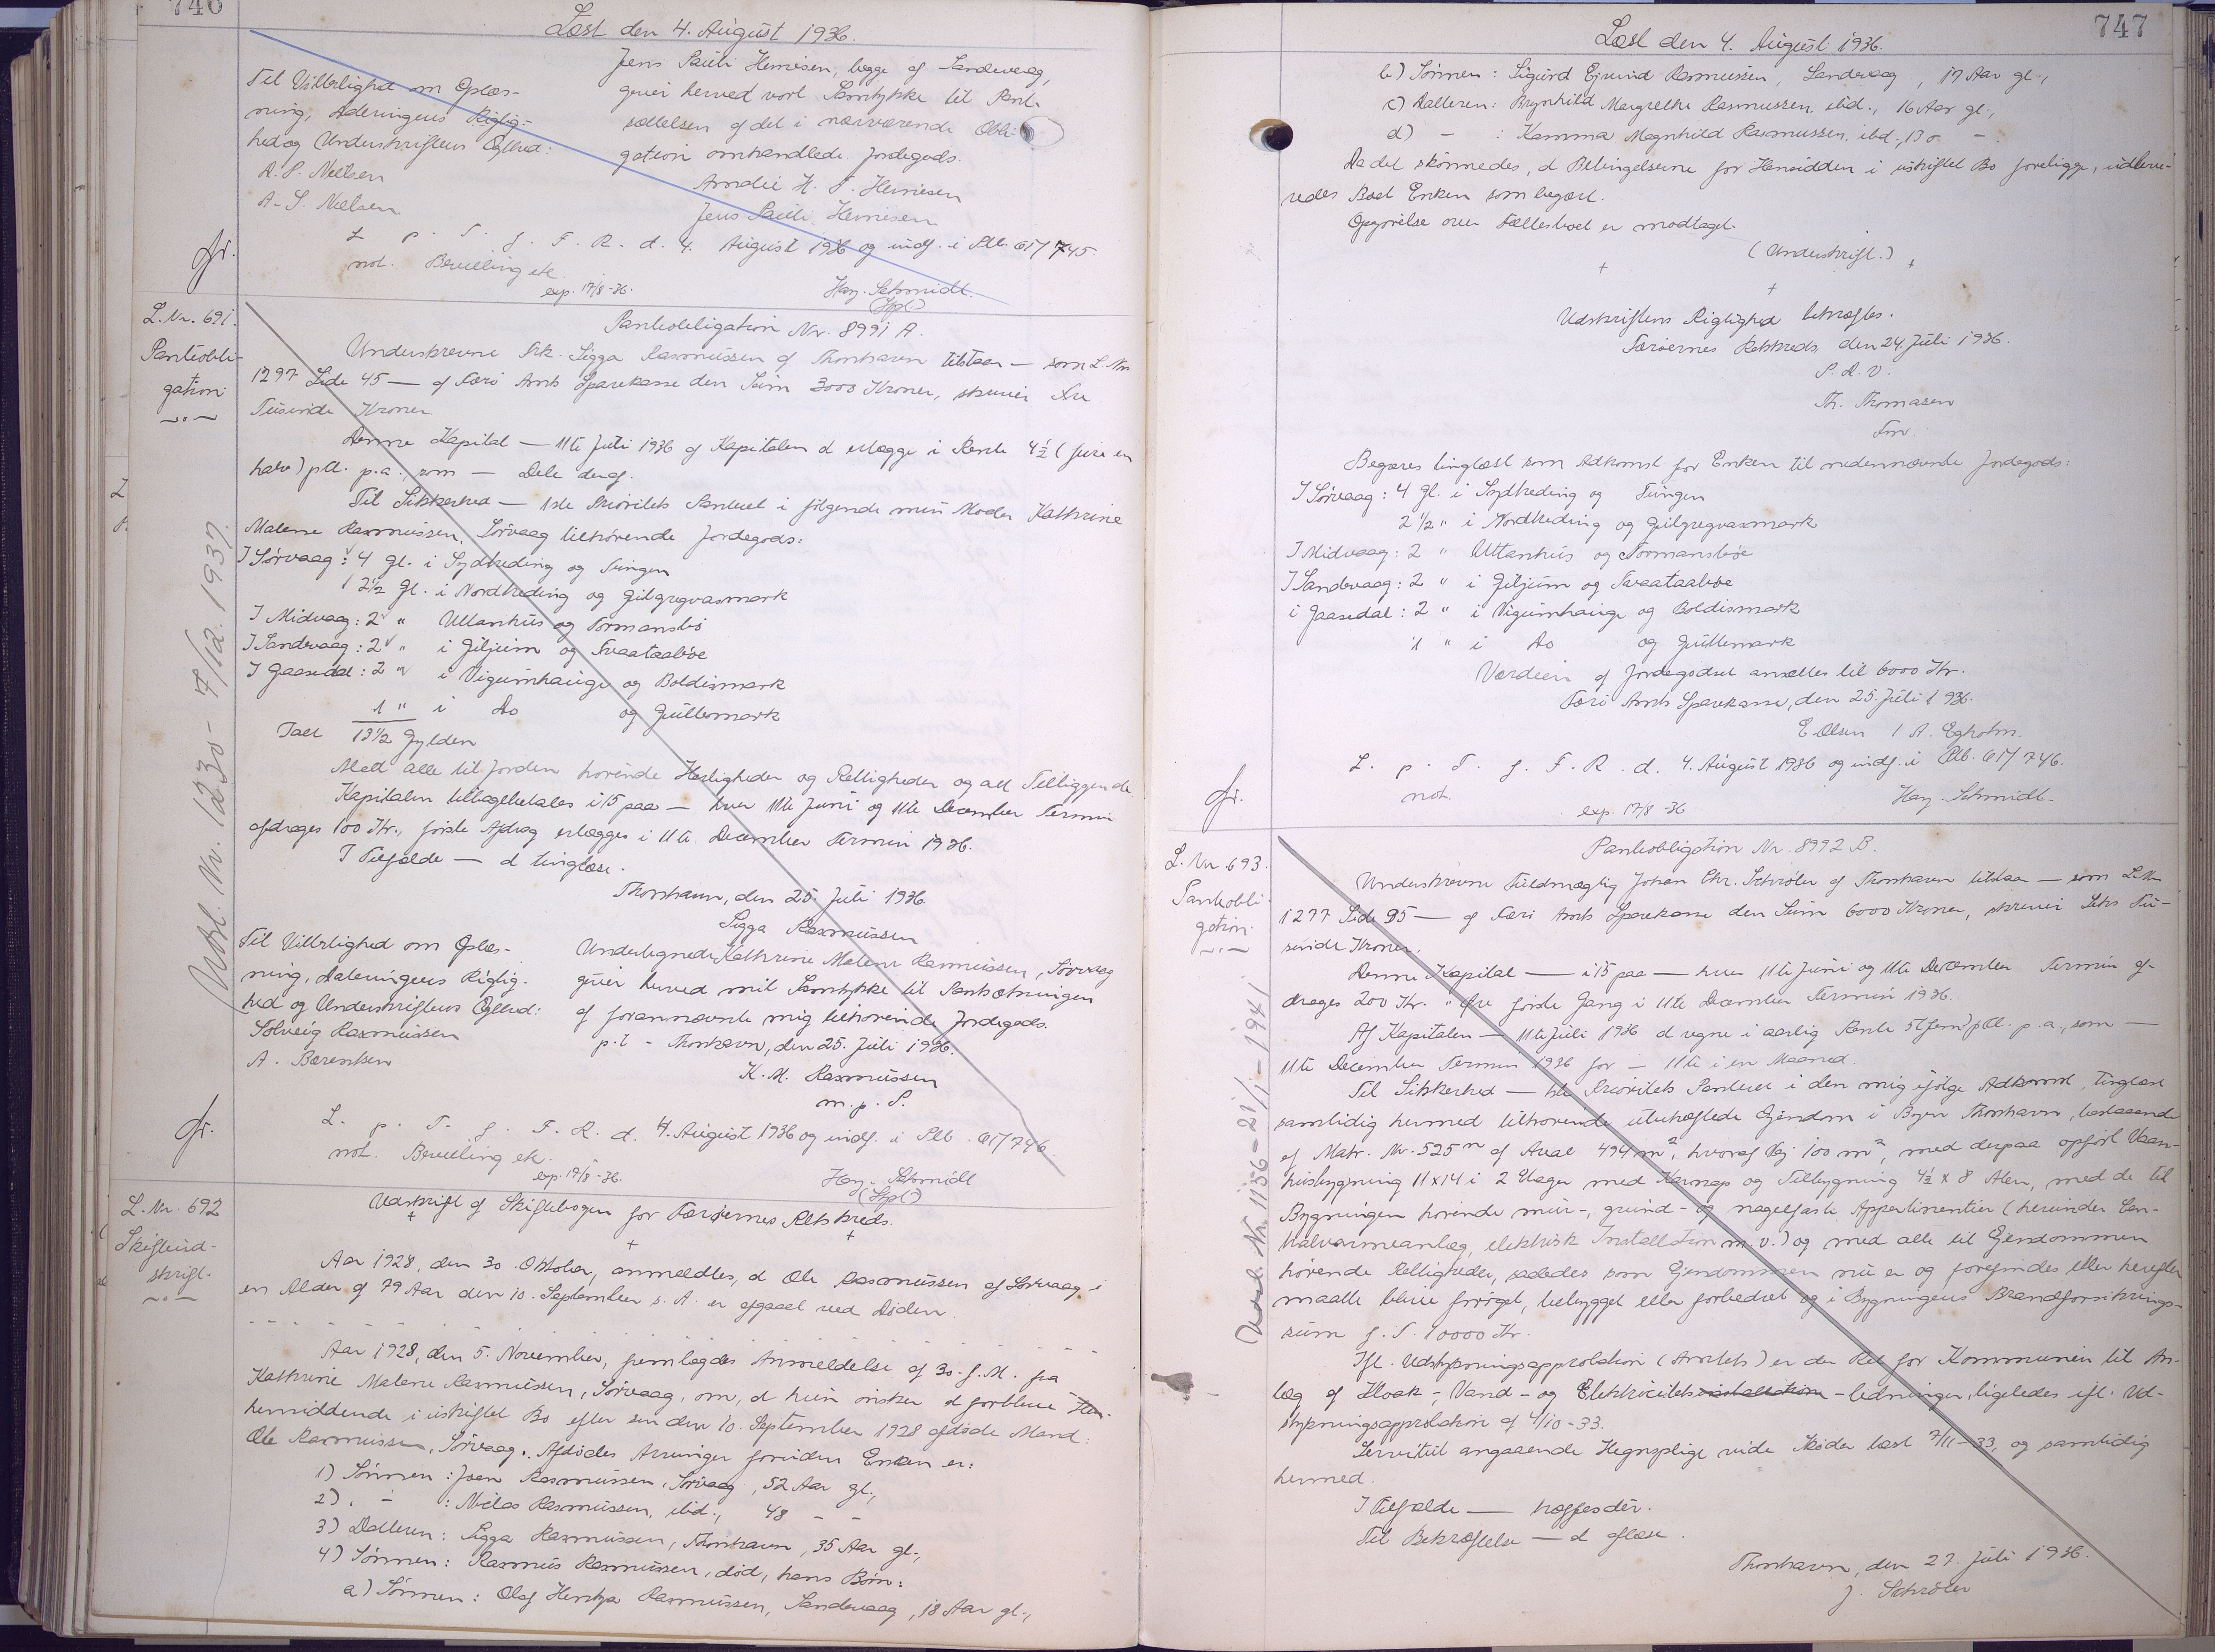 746
Læst den 4. August 1936.
Til Vitterlighed om Oplæs-
ning, Dateringens Rigtig-
hed og Underskriftens Ægthed:
A. S. Nielsen
Jens Pauli Hennesen, begge af Sandevaag,
giver herved vort Samtykke til Pant-
sættelsen af det i nærværende Obli-
gation omhandlede Jordegods.
Jens Pauli Hennesen
L. p. T. f. F. R. d. 4. August 1936 og indf. i Ptb. 61/745.
not. Bevilling etc.
exp. 17/8-36.
Hay. Schmidt.
L. Nr. 691.
Pantobli-
gation
Pantobligation Nr. 8991 A.
Underskrevne Frk. Sigga Rasmussen af Thorshavn tilstaar — som L. Nr.
1297 Side 45 — af Færø Amts Sparekasse den Sum 3000 Kroner, skriver Tre
Tusinde Kroner
Denne Kapital — 11te Juli 1936 af Kapitalen at erlægge i Rente 4½ (fire en
halv) pCt. p.a., som — Dele deraf.
Til Sikkerhed — 1ste Prioritets Panteret i følgende min Moder Kathrine
Malene Rasmussen, Sörvaag tilhørende Jordegods:
I Sörvaag: 4 Gl. i Sydheding og Tungen
2½ Gl. i Nordheding og Gilgregvasmark
I Midvaag: 2 " Uttanhus og Tormansbö
I Sandevaag: 2 " i Giljum og Svaataabøe
I Gaasedal: 2 " i Vigumhauge og Boldismark
1 " i Ao og Gullemark
Ialt 13½ Gylden
Med alle til Jorden hørende Herligheder og Rettigheder og alt Tilliggende
Kapitalen tilbagebetales i 15 paa — hver 11te Juni og 11te December Termin
afdrages 100 Kr., første Afdrag erlægges i 11te December Termin 1936.
I Tilfælde — at tinglæse.
Thorshavn, den 25. Juli 1936.
Sigga Rasmussen
Til Vitterlighed om Oplæs-
ning, Dateringens Rigtig-
hed og Underskriftens Ægthed:
Solveig Rasmussen
A. Bærentsen
Undertegnede Kathrine Malene Rasmussen, Sörvaag
giver herved mit Samtykke til Pantsætningen
af forannævnte mig tilhørende Jordegods.
p.t. - Thorshavn, den 25. Juli 1936.
K. M. Rasmussen
m. p. P.
L. p. T. f. F. R. d. 4. August 1936 og indf. i Ptb. 61/746.
not. Bevilling etc.
exp. 17/8-36.
Hay. Schmidt
Udsl. Nr. 1230 - 7/12. 1937.
L. Nr. 692
Skifteud-
skrift.
Udskrift af Skiftebogen for Færøernes Retskreds.
Aar 1928, den 30. Oktober, anmeldtes, at Ole Rasmussen af Sörvaag i
en Alder af 79 Aar den 10. September s. A. er afgaaet ved Døden.
Aar 1928, den 5. November, fremlagdes Anmeldelse af 30. f. M. fra
Kathrine Malene Rasmussen, Sörvaag, om, at hun ønsker at forblive
hensiddende i uskiftet Bo efter sin den 10. September 1928 afdøde Mand:
Ole Rasmussen, Sörvaag. Afdødes Arvinger foruden Enken er:
1) Sønnen: Joen Rasmussen, Sörvaag, 52 Aar gl.,
2) - : Niclas Rasmussen, ibid., 48 - -
3) Datteren: Sigga Rasmussen, Thorshavn, 35 Aar gl.,
4) Sønnen: Rasmus Rasmussen, død, hans Børn:
a) Sønnen: Olaf Rasmussen, Sandevaag, 18 Aar gl.,
747
Læst den 4. August 1936.
b) Sønnen: Sigurd Ejvind Rasmussen, Sandevaag, 17 Aar gl.,
c) Datteren: Brynhild Margrethe Rasmussen, ibid., 16 Aar gl.,
d) - : Kamma Magnhild Rasmussen, ibid., 13 -
Da det skønnedes, at Betingelserne for Hensidden i uskiftet Bo foreligge, udleve-
redes Boet Enken som begært.
Opgørelse over Fællesboet er modtaget.
(Underskrift.)
Udskriftens Rigtighed bekræftes.
Færøernes Retskreds, den 24. Juli 1936.
P. D. V.
Th. Thomasen
Fm.
Begæres tinglæst som Adkomst for Enken til nedennævnte Jordegods:
I Sörvaag: 4 Gl. i Sydheding og Tungen
2 1/2 " i Nordheding og Gilgregvasmark
I Midvaag: 2 " Uttanhus og Tormansbøe
I Sandevaag: 2 " i Giljum og Svaataabøe
i Gaasedal: 2 " i Vigumhauge og Boldismark
1 " i Ao og Gullemark
Værdien af Jordegodset ansættes til 6000 Kr.
Færø Amts Sparekasse, den 25. Juli 1936.
E Olsen / A. Egholm.
L. p. T. f. F. R. d. 4. August 1936 og indf. i Ptb. 61/746.
not.
exp. 17/8-36
Hay. Schmidt.
L. Nr. 693.
Pantobli-
gation
Pantobligation Nr. 8992 B.
Underskrevne Fuldmægtig Johan Chr. Schrøter af Thorshavn tilstaar — som L. Nr.
1277 Side 95 — af Færø Amts Sparekasse den Sum 6000 Kroner, skriver Seks Tu-
sinde Kroner.
Denne Kapital — i 15 paa — hver 11te Juni og 11te December Termin af-
drages 200 Kr. " Øre første Gang i 11te December Termin 1936.
Af Kapitalen — 11te Juli 1936 at regne i aarlig Rente 5 (fem) pCt. p.a., som —
11te December Termin 1936 for — 11te i en Maaned.
Til Sikkerhed — 1ste Prioritets Panteret i den mig ifølge Adkomst, tinglæst
samtidig hermed tilhørende ubehæftede Ejendom i Byen Thorshavn, bestaaende
af Matr. Nr. 525 m af Areal 494 m², hvoraf Vej 100 m², med derpaa opført Vaan-
husbygning 11x14 i 2 Etager med Karnap og Tilbygning 4½ x 8 Alen, med de til
Bygningen hørende mur-, grund- og nagelfaste Appertinentier (herunder Cen-
tralvarmeanlæg, elektrisk Installation m.v.) og med alle til Ejendommen
hørende Rettigheder, saaledes som Ejendommen nu er og forefindes eller herefter
maatte blive forøget, bebygget eller forbedret og i Bygningens Brandforsikrings-
sum f. T. 10000 Kr.
Ifl. Udstykningsapprobation (Amtets) er der Ret for Kommunen til An-
læg af Kloak-, Vand- og Elektricitets installation -ledninger, ligeledes ifl. Ud-
stykningsapprobation af 4/10-33.
Servitut angaaende Hegnspligt vide Skøder læst 7/11-33, og samtidig
hermed.
I Tilfælde — træffes dér.
Til Bekræftelse — at aflæse.
Thorshavn, den 27. Juli 1936.
J. Schrøter
Udsl. Nr. 1156 - 21/1 - 1941